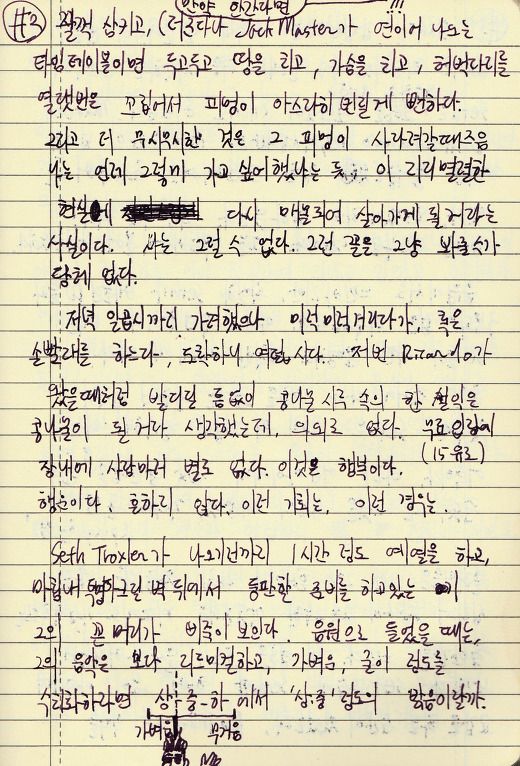 만약 안간다면 !!!
#2 꿀꺽 삼키고, (더군다나 Jack Master가 연이어 나오는
타임테이블이면 두고두고 땅을 치고, 가슴을 치고, 허벅다리를
열댓번은 꼬집어서 피멍이 아스라히 번질게 뻔하다.
그리고 더 무시무시한 것은 그 피멍이 사라져갈때즈음
나는 언제 그렇게 가고 싶어했냐는 듯, 이 리얼한
현실에 다시 매몰되어 살아가게 될거라는
사실이다. 나는 그럴 수 없다. 그런 꼴을 그냥 봐줄수가
당최 없다.
저녁 일곱시까지 가려했으나 미적미적거리다가, 혹은
손빨래를 하느라, 도착하니 여덟시다. 저번 Ricardo가
왔을때처럼 발디딜 틈없이 콩나물 시루 속의 한
콩나물이 될거라 생각했는데, 의외로 없다. 무료입장에
(15유로)
장내에 사람마저 별로 없다. 이것은 행복이다.
행운이다. 흔하지 않다. 이런 기회는, 이런 경우는.
Seth Troxler가 나오기전까지 1시간 정도 예열을 하고,
마침내 그린 벽 뒤에서 등판할 준비를 하고있는
그의 끈머리가 삐죽이 보인다. 음원으로 들었을 때는,
그의 음악은 보다 리드미컬하고, 가벼운, 굳이 정도를
수치화하라면 상-중-하에서 '상중' 정도의 맑음이랄까.
가벼움 무거움